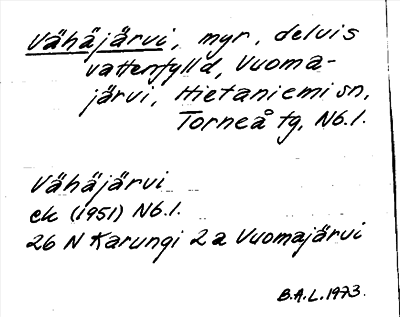 Vähäjärvi, myr, delvis
vattenfylld, Vuoma-
järvi, Hietaniemi sn,
Torneå tg, Nb.l.
Vähäjärvi
ek (1951) Nb.l.
26 N Karungi 2a Vuomajärvi
B.A.L. 1973.